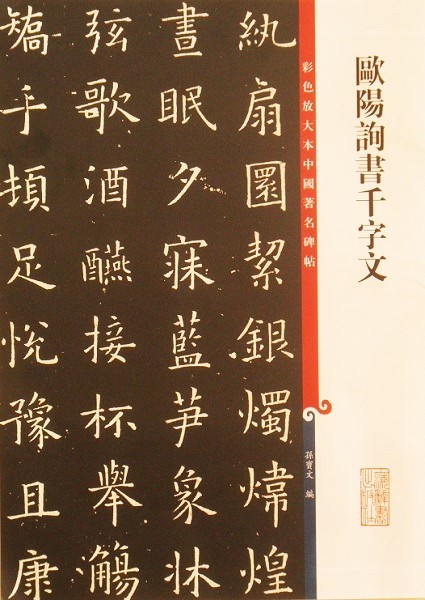 歐陽詢書千字文
彩色放大本中國著名碑帖
孫寶文 編
紈扇圓絜銀燭煒煌
晝眠夕寐藍芛象牀
弦歌酒醼接杯舉觴
矯手頓足悅豫且康